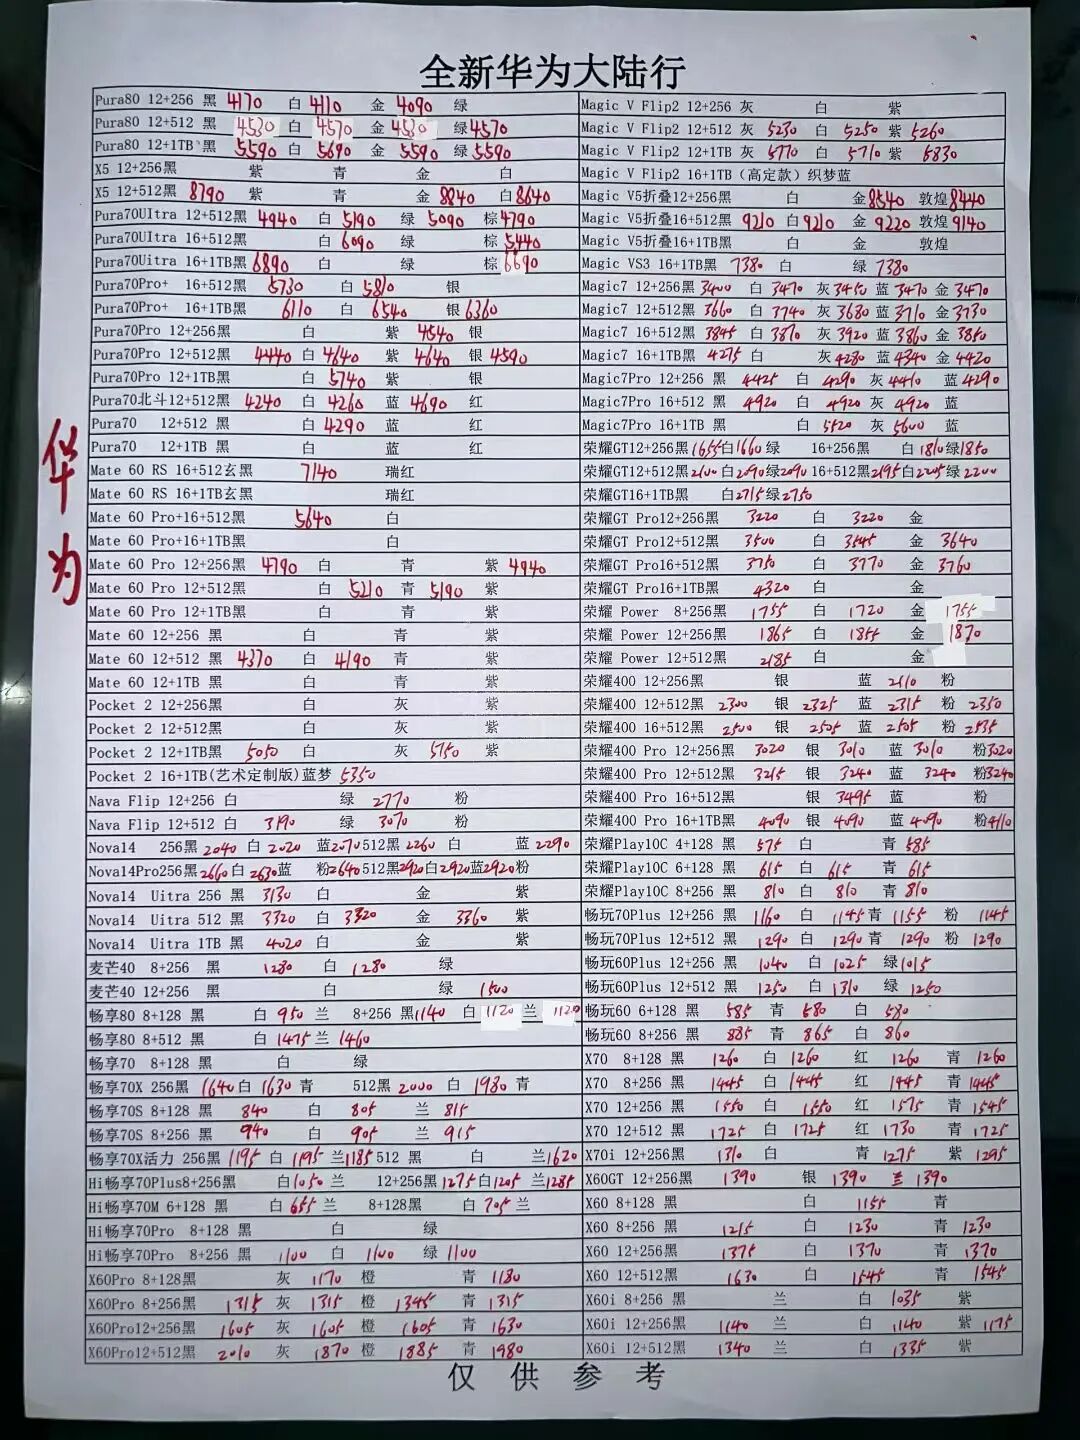 全新华为大陆行
华为
Pura80 12+256 黑 4170 白 4110 金 4090 绿
Pura80 12+512 黑 4530 白 4570 金 4530 绿 4570
Pura80 12+1TB 黑 5590 白 5690 金 5590 绿 5590
X5 12+256黑 紫 青 金 白
X5 12+512黑 8790 紫 青 金 8840 白 8640
Pura70UItra 12+512黑 4940 白 5190 绿 5090 棕 4790
Pura70UItra 16+512黑 白 6090 绿 棕 5440
Pura70Uitra 16+1TB黑 6890 白 绿 棕 6690
Pura70Pro+ 16+512黑 5730 白 5810 银
Pura70Pro+ 16+1TB黑 6110 白 6540 银 6360
Pura70Pro 12+256黑 白 紫 4540 银
Pura70Pro 12+512黑 4440 白 4640 紫 4640 银 4590
Pura70Pro 12+1TB黑 白 5740 紫 银
Pura70北斗12+512黑 4240 白 4260 蓝 4690 红
Pura70 12+512 黑 白 4290 蓝 红
Pura70 12+1TB 黑 白 蓝 红
Mate 60 RS 16+512玄黑 7140 瑞红
Mate 60 RS 16+1TB玄黑 瑞红
Mate 60 Pro+16+512黑 5640 白
Mate 60 Pro+16+1TB黑 白
Mate 60 Pro 12+256黑 4790 白 青 紫 4940
Mate 60 Pro 12+512黑 白 5210 青 5190 紫
Mate 60 Pro 12+1TB黑 白 青 紫
Mate 60 12+256 黑 白 青 紫
Mate 60 12+512 黑 4370 白 4190 青 紫
Mate 60 12+1TB 黑 白 青 紫
Pocket 2 12+256黑 白 灰 紫
Pocket 2 12+512黑 白 灰 紫
Pocket 2 12+1TB黑 5050 白 灰 5150 紫
Pocket 2 16+1TB(艺术定制版)蓝梦 5350
Nava Flip 12+256 白 绿 2770 粉
Nava Flip 12+512 白 3190 绿 3070 粉
Nova14 256黑 2040 白 2020 蓝 2070 512黑 2260 白 蓝 2290
Nova14Pro256黑 2660 白 2630 蓝 粉 2640 512黑 2920 白 2920 蓝 2920 粉
Nova14 Uitra 256 黑 3130 白 金 紫
Nova14 Uitra 512 黑 3320 白 3320 金 3360 紫
Nova14 Uitra 1TB 黑 4020 白 金 紫
麦芒40 8+256 黑 1280 白 1280 绿
麦芒40 12+256 黑 白 绿 1500
畅享80 8+128 黑 白 950 兰 8+256 黑 1140 白 1120 兰 1120
畅享80 8+512 黑 白 1475 兰 1460
畅享70 8+128 黑 白 绿
畅享70X 256黑 1640 白 1630 青 512黑 2000 白 1980 青
畅享70S 8+128 黑 840 白 805 兰 815
畅享70S 8+256 黑 940 白 905 兰 915
畅享70X活力 256黑 1195 白 1195 兰 1185 512 黑 白 兰 1620
Hi畅享70Plus8+256黑 白 1050 兰 12+256黑 1275 白 1205 兰 1285
Hi畅享70M 6+128 黑 白 655 兰 8+128黑 白 705 兰
Hi畅享70Pro 8+128 黑 白 绿
Hi畅享70Pro 8+256 黑 1100 白 1100 绿 1100
X60Pro 8+128黑 灰 1170 橙 青 1180
X60Pro 8+256黑 1315 灰 1315 橙 1345 青 1315
X60Pro12+256黑 1605 灰 1605 橙 1605 青 1630
X60Pro12+512黑 2010 灰 1870 橙 1885 青 1980
Magic V Flip2 12+256 灰 白 紫
Magic V Flip2 12+512 灰 5230 白 5250 紫 5260
Magic V Flip2 12+1TB 灰 5770 白 5710 紫 5830
Magic V Flip2 16+1TB（高定款）织梦蓝
Magic V5折叠12+256黑 白 金 8540 敦煌 8440
Magic V5折叠16+512黑 9210 白 9210 金 9220 敦煌 9140
Magic V5折叠16+1TB黑 白 金 敦煌
Magic VS3 16+1TB黑 7380 白 绿 7380
Magic7 12+256黑 3400 白 3470 灰 3450 蓝 3470 金 3470
Magic7 12+512黑 3660 白 3740 灰 3680 蓝 3710 金 3730
Magic7 16+512黑 3845 白 3870 灰 3920 蓝 3860 金 3850
Magic7 16+1TB黑 4275 白 灰 4280 蓝 4340 金 4420
Magic7Pro 12+256 黑 4425 白 4290 灰 4410 蓝 4290
Magic7Pro 16+512 黑 4920 白 4920 灰 4920 蓝
Magic7Pro 16+1TB 黑 白 5520 灰 5600 蓝
荣耀GT12+256黑 1655 白 1660 绿 16+256黑 白 1810 绿 1850
荣耀GT12+512黑 2100 白 2090 绿 2090 16+512黑 2195 白 2205 绿 2200
荣耀GT16+1TB黑 白 2715 绿 2750
荣耀GT Pro12+256黑 3220 白 3220 金
荣耀GT Pro12+512黑 3500 白 3545 金 3640
荣耀GT Pro16+512黑 3750 白 3770 金 3760
荣耀GT Pro16+1TB黑 4320 白 金
荣耀 Power 8+256黑 1755 白 1720 金 1755
荣耀 Power 12+256黑 1865 白 1855 金 1870
荣耀 Power 12+512黑 2185 白 金
荣耀400 12+256黑 银 蓝 2110 粉
荣耀400 12+512黑 2300 银 2325 蓝 2315 粉 2350
荣耀400 16+512黑 2500 银 2505 蓝 2505 粉 2535
荣耀400 Pro 12+256黑 3020 银 3010 蓝 3010 粉 3020
荣耀400 Pro 12+512黑 3215 银 3240 蓝 3240 粉 3240
荣耀400 Pro 16+512黑 银 3495 蓝 粉
荣耀400 Pro 16+1TB黑 4090 银 4090 蓝 4090 粉 4110
荣耀Play10C 4+128 黑 575 白 青 585
荣耀Play10C 6+128 黑 615 白 615 青 615
荣耀Play10C 8+256 黑 810 白 810 青 810
畅玩70Plus 12+256 黑 1160 白 1145 青 1155 粉 1145
畅玩70Plus 12+512 黑 1290 白 1290 青 1290 粉 1290
畅玩60Plus 12+256 黑 1040 白 1025 绿 1015
畅玩60Plus 12+512 黑 1250 白 1310 绿 1250
畅玩60 6+128 黑 585 青 580 白 580
畅玩60 8+256 黑 885 青 865 白 860
X70 8+128 黑 1260 白 1260 红 1260 青 1260
X70 8+256 黑 1445 白 1445 红 1445 青 1445
X70 12+256 黑 1550 白 1550 红 1575 青 1545
X70 12+512 黑 1725 白 1725 红 1730 青 1725
X70i 12+256 黑 1310 白 青 1275 紫 1295
X60GT 12+256黑 1390 银 1390 兰 1390
X60 8+128 黑 白 1155 青
X60 8+256 黑 1215 白 1230 青 1230
X60 12+256黑 1375 白 1370 青 1370
X60 12+512黑 1630 白 1545 青 1545
X60i 8+256 黑 兰 白 1035 紫
X60i 12+256黑 1140 兰 白 1140 紫 1175
X60i 12+512黑 1340 兰 白 1335 紫
仅供参考